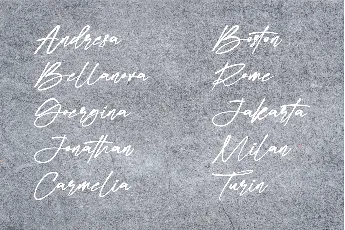 Andresa
Bellanova
Georgina
Jonathan
Carmelia
Boston
Rome
Jakarta
Milan
Turin